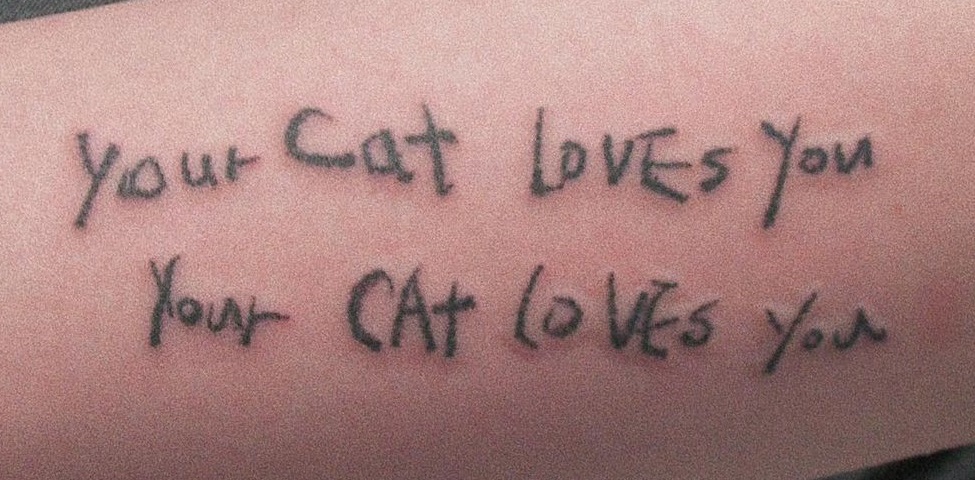 your Cat LOVEs You
Your CAt LOVEs You